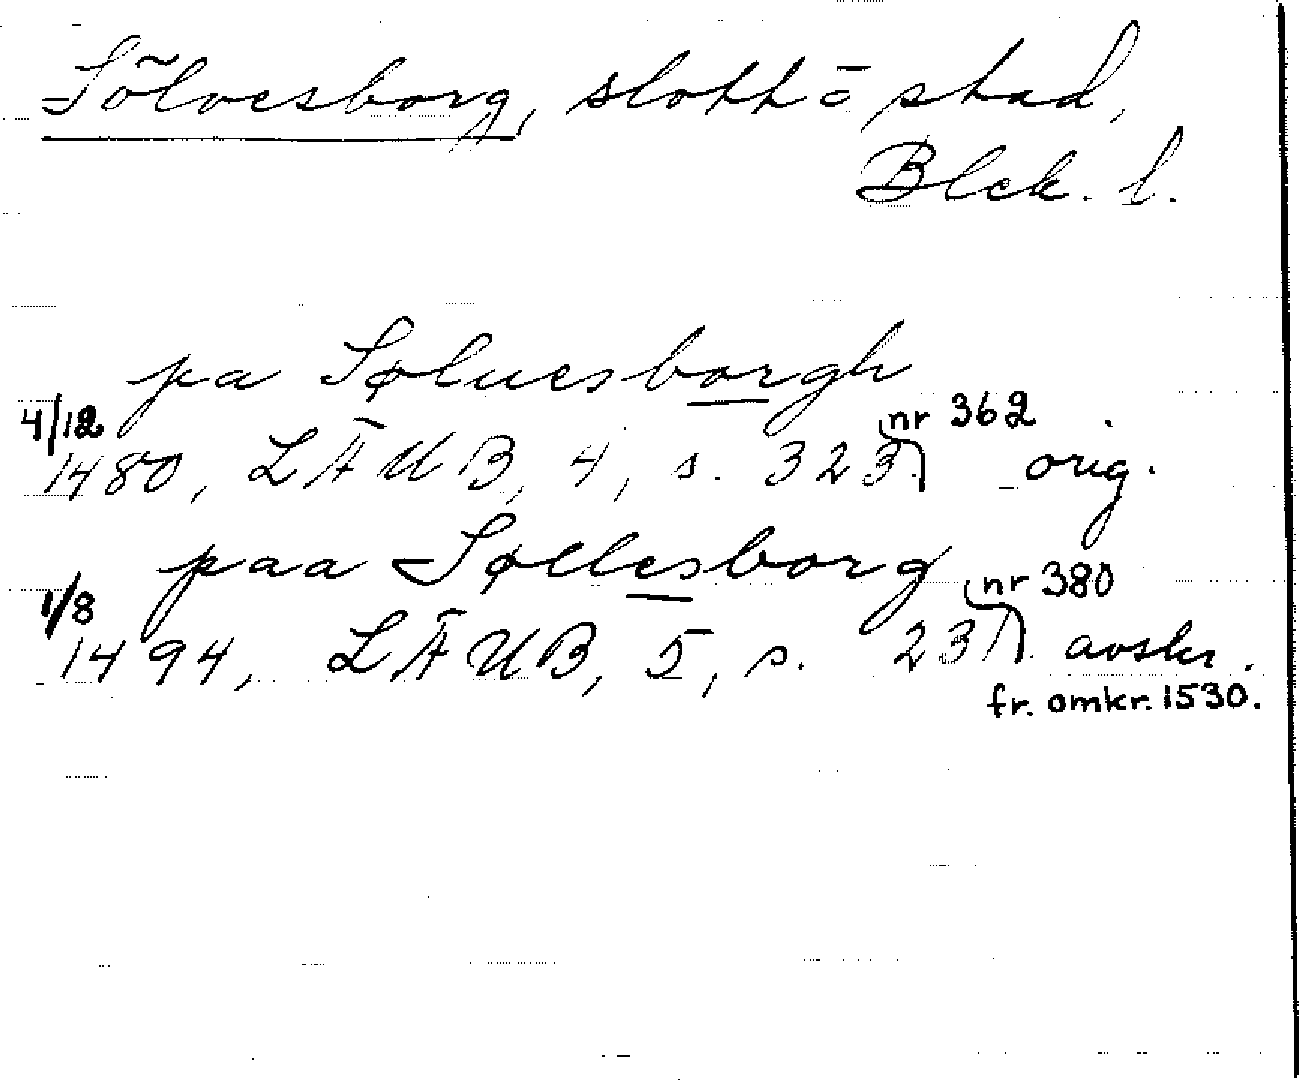 Sölvesborg, slott o stad,
Blek. l.
pa Søluesborgh
4/12 1480, LÄUB, 4, s. 323 nr 362 orig.
paa Søllesborg
1/8 1494, LÄUB, 5, s. 237 nr 380 avskr.
fr. omkr. 1530.